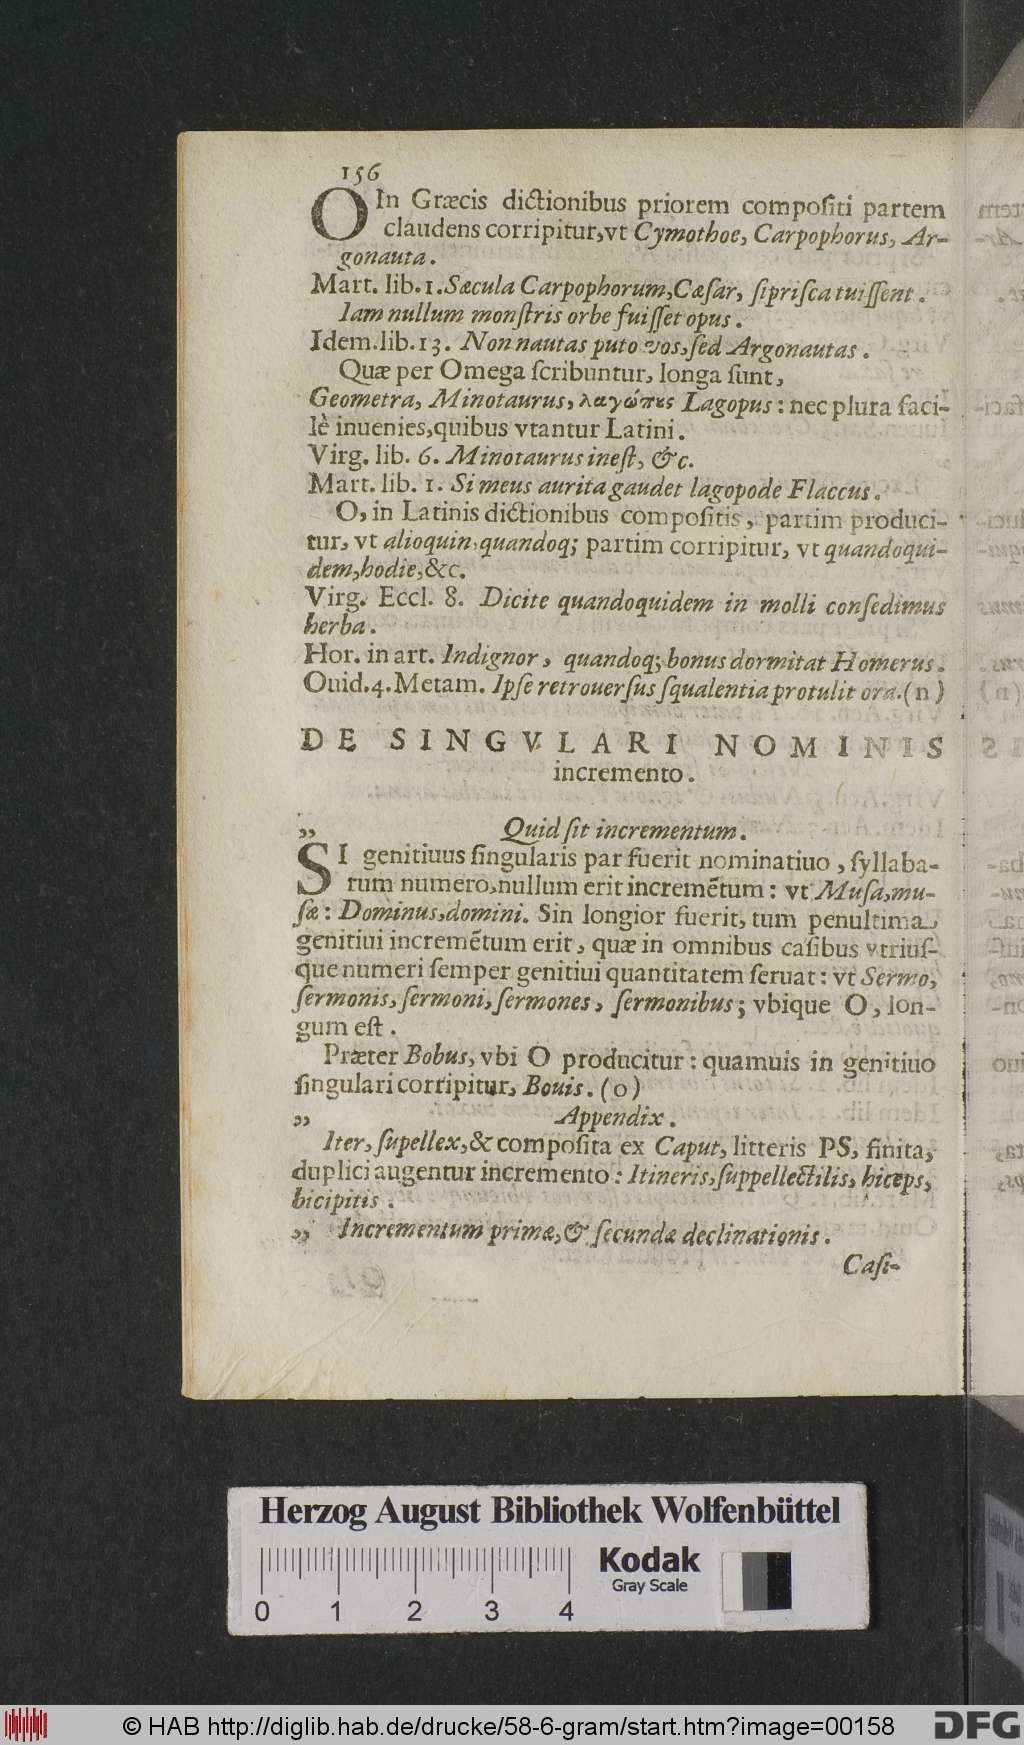 156
O In Græcis dictionibus priorem compoſiti partem
claudens corripitur,vt Cymothoe, Carpophorus, Ar-
gonauta.
Mart. lib.1.Sæcula Carpophorum,Cæſar, ſipriſca tuiſſent.
Iam nullum monſtris orbe fuiſſet opus.
Idem.lib.13. Non nautas puto vos,ſed Argonautas.
Quæ per Omega ſcribuntur, longa ſunt,
Geometra, Minotaurus, λαγώπες Lagopus: nec plura faci-
lè inuenies,quibus vtantur Latini.
Virg. lib. 6. Minotaurus ineſt, &c.
Mart. lib. 1. Si meus aurita gaudet lagopode Flaccus.
O, in Latinis dictionibus compoſitis, partim produci-
tur, vt alioquin,quandoq; partim corripitur, vt quandoqui-
dem,hodie,&c.
Virg. Eccl. 8. Dicite quandoquidem in molli conſedimus
herba.
Hor. in art. Indignor, quandoq; bonus dormitat Homerus.
Ouid.4.Metam. Ipſe retrouerſus ſqualentia protulit ora.(n)
DE SINGVLARI NOMINIS
incremento.
„ Quid ſit incrementum.
SI genitiuus ſingularis par fuerit nominatiuo, ſyllaba-
rum numero,nullum erit incremētum: vt Muſa,mu-
ſæ: Dominus,domini. Sin longior fuerit, tum penultima
genitiui incremētum erit, quæ in omnibus caſibus vtriuſ-
que numeri ſemper genitiui quantitatem ſeruat: vt Sermo,
ſermonis, ſermoni, ſermones, ſermonibus; vbique O, lon-
gum eſt.
Præter Bobus, vbi O producitur: quamuis in genitiuo
ſingulari corripitur, Bouis. (o)
„ Appendix.
Iter, ſupellex,& compoſita ex Caput, litteris PS, finita,
duplici augentur incremento: Itineris,ſuppellectilis, biceps,
bicipitis.
„ Incrementum primæ,& ſecundæ declinationis.
Caſi-
Herzog August Bibliothek Wolfenbüttel
Kodak
Gray Scale
0 1 2 3 4
© HAB http://diglib.hab.de/drucke/58-6-gram/start.htm?image=00158
DFG